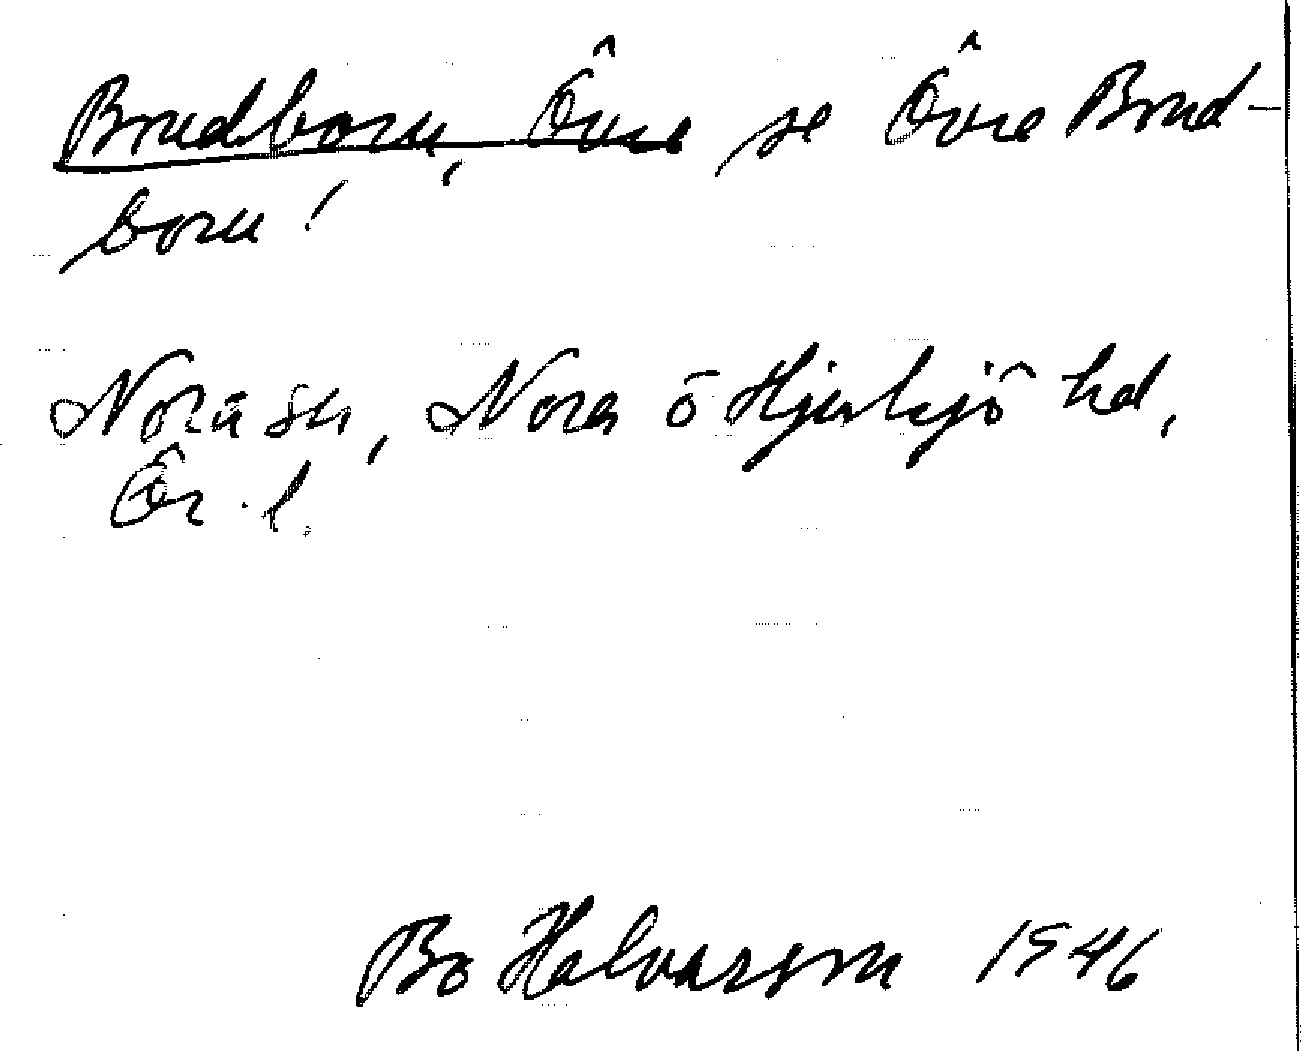 Brudborn, Övre se Övre Brud-
born!
Nora sn, Nora o Hjulsjö hd,
Ör. l.
Bo Halvarson 1946